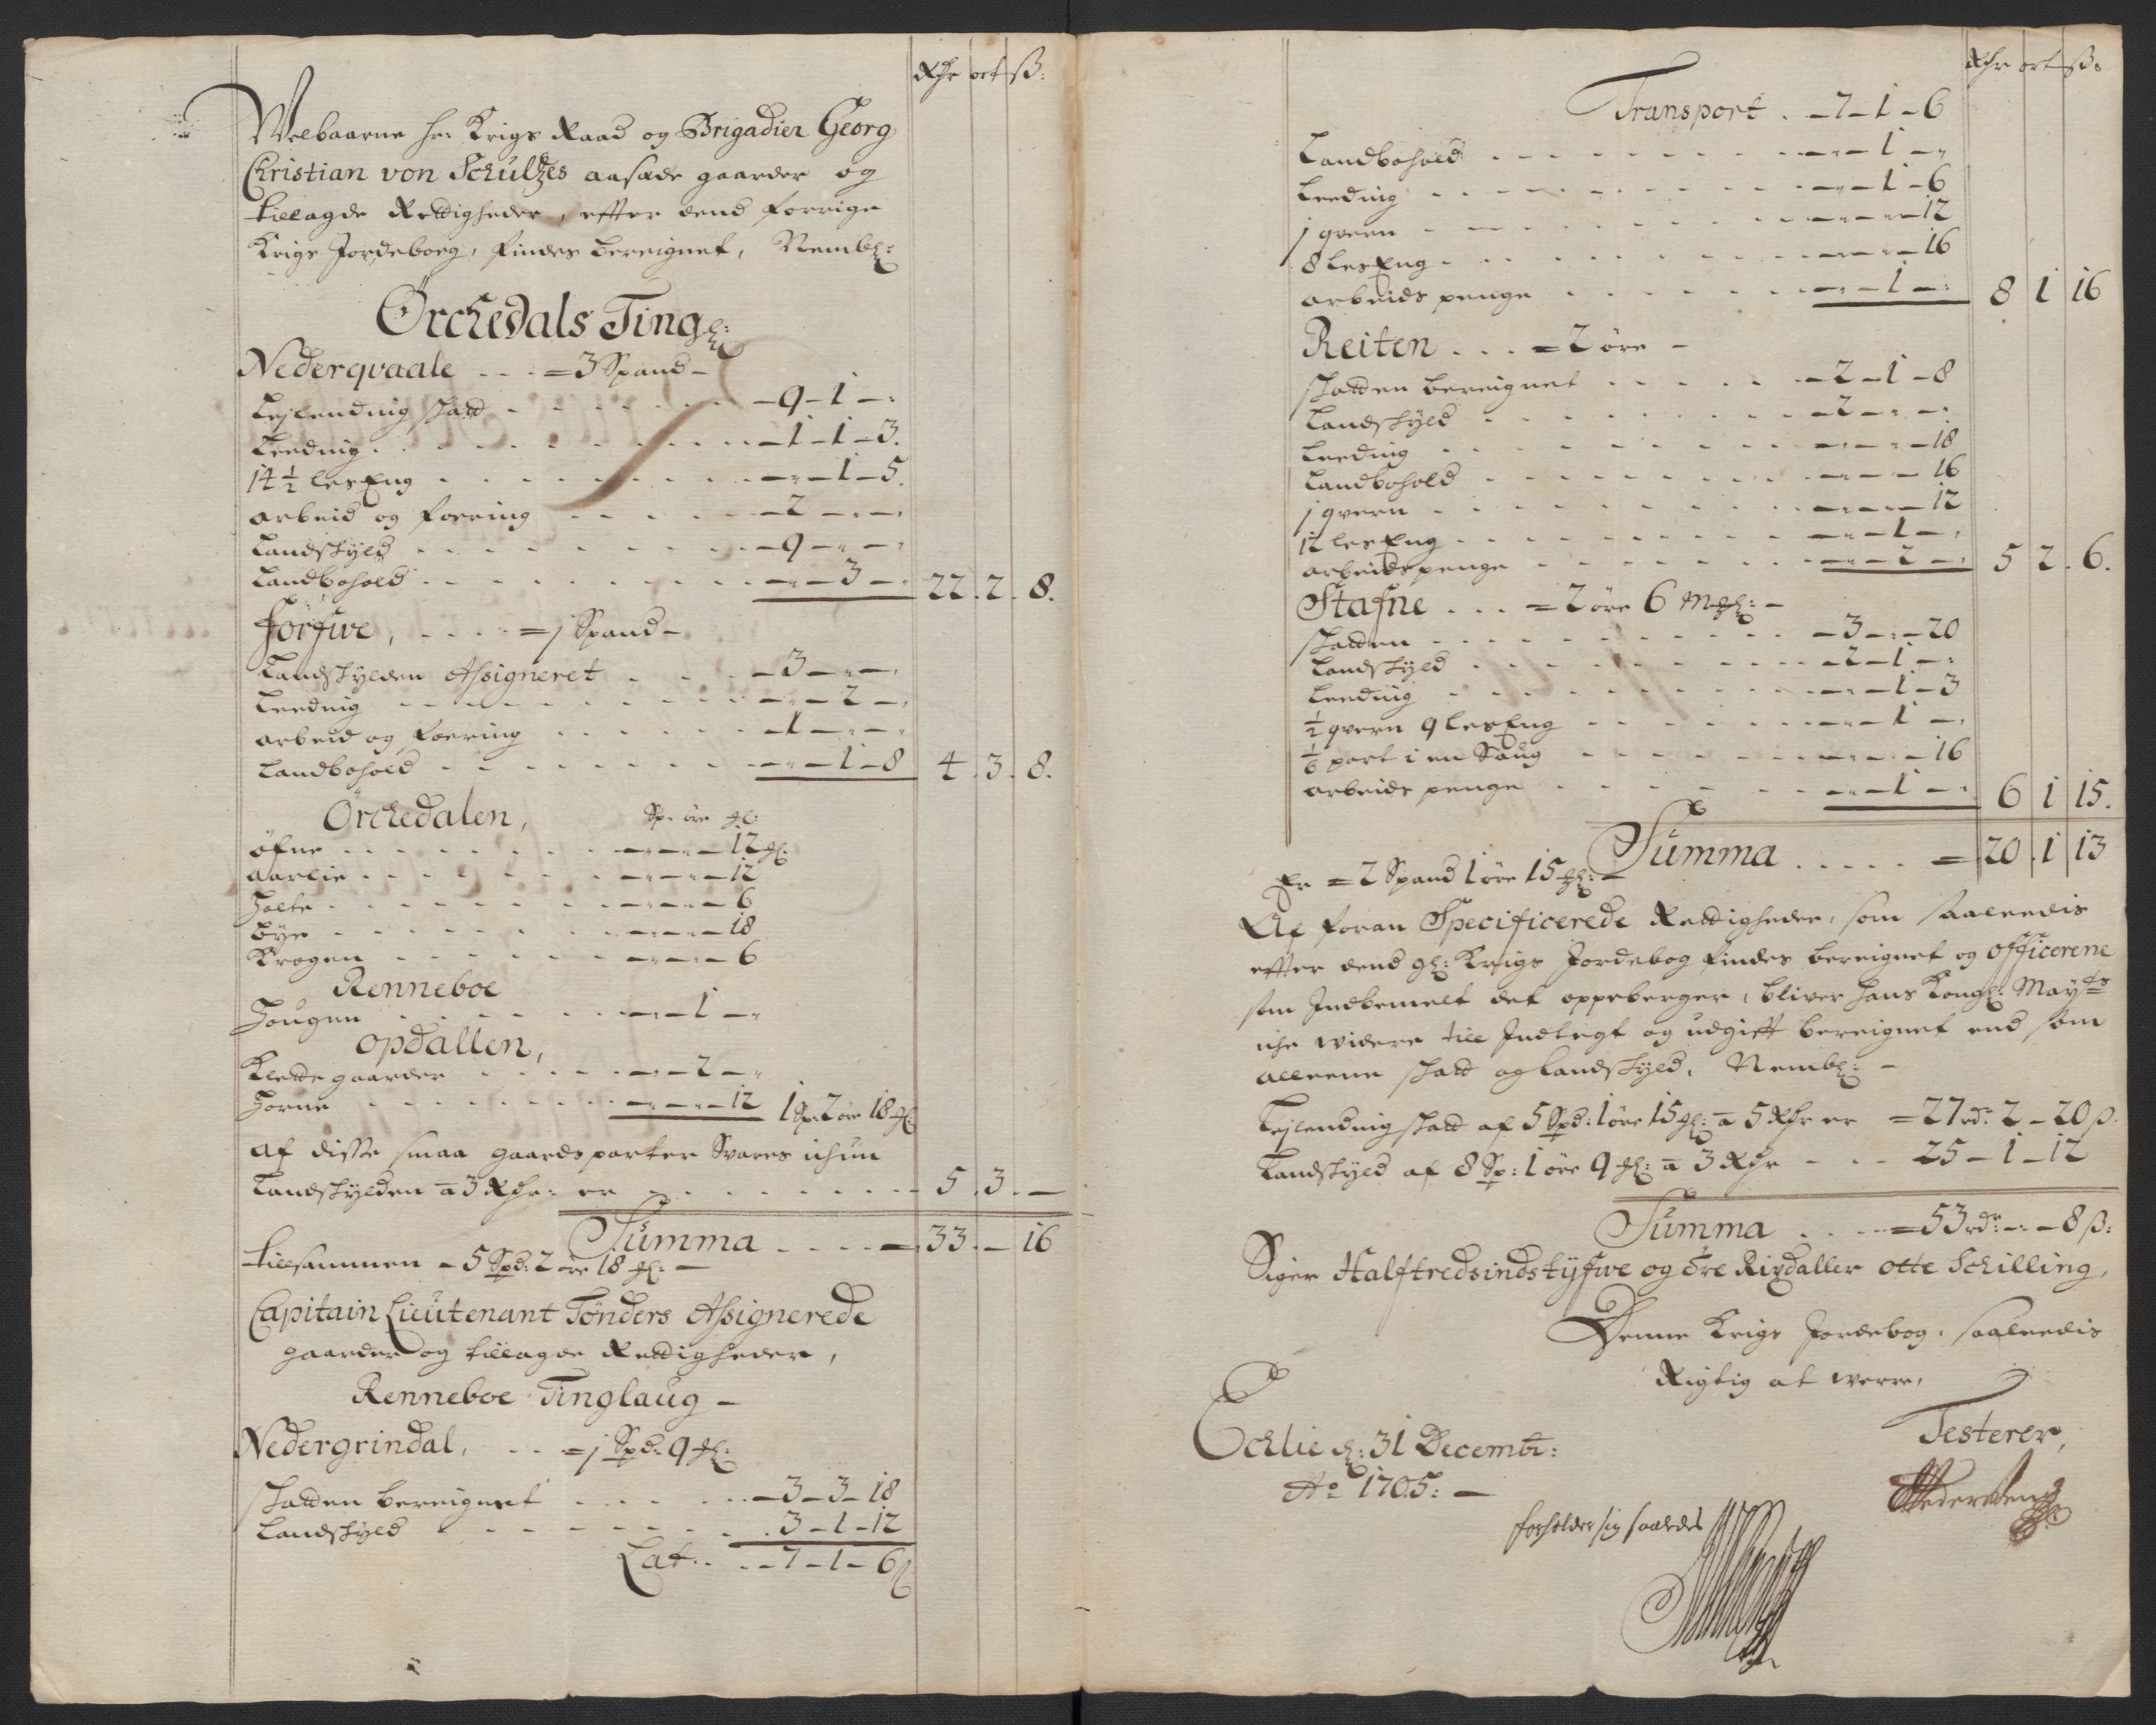 Rdr ort ß:
Welbaarne hr: Krigs Raad og Brigadier Georg
Christian von Schultzes aasæde gaarder og
tillagde Rettigheder, efter dend forrige
Krigs Jordeboeg, findes bereignet, Nembl:
Örchedals Tingl:
Nederqvaale - - - = 3 Spand -
Lejlending skatt - - - - - - - 9 - 1 - :
Leeding - - - - - - - - 1 - 1 - 3.
14 ½ les Eng - - - - - - - " - 1 - 5.
arbeid og foering - - - - - 2 - " - "
Landskyld - - - - - - - 9 - " - "
Landbohold - - - - - - - " - 3 - " 22. 2. 8.
Förfwe, - - - = 1 Spand -
Landskylden Assigneret - - - 3 - " - "
Leeding - - - - - - - " - 2 - "
arbeid og foering - - - - - 1 - " - "
Landbohold - - - - - - - " - 1 - 8 4. 3. 8.
Örchedalen, Sp: öre gl:
öfne - - - - - - " - " - 12 gl:
Aarlie - - - - - - " - " - 12
Holte - - - - - - " - " - 6
Bÿe - - - - - - " - " - 18
Krogen - - - - - - " - " - 6
Renneboe
Hougen - - - - - - " - 1 - "
Opdallen,
Klette gaarder - - - - - " - 2 - "
Horne - - - - - - " - " - 12 1 Sp: 2 öre 18 gl:
af disse smaa gaardsparter Svares ichun
Landskylden a 3 Rdr: er - - - - - - 5. 3. -
Summa - - - - = 33. - 16
tillsammen - 5 Spd: 2 öre 18 gl: -
Capitain Lieutenant Tönders Assignerede
gaarder og tillagde Rettigheder,
Renneboe Tinglaug -
Nedergrindal, - - = 1 Spd: 9 gl:
skatten bereignet - - - - - 3 - 3 - 18
Landskyld - - - - - - - 3 - 1 - 12
Lat: - - 7 - 1 - 6
Rdr ort ß:
Transport . - 7 - 1 - 6
Landbohold - - - - - - - " - 1 - "
Leeding - - - - - - - - " - 1 - 6
1 qvern - - - - - - - - " - " - 12
8 les Eng - - - - - - - - " - " - 16
arbeids penge - - - - - - " - 1 - : 8 1 16
Reiten . . . = 2 öre -
skatten bereignet - - - - - 2 - 1 - 8
Landskyld - - - - - - - 2 - " - "
Leeding - - - - - - - " - " - 18
Landbohold - - - - - - - " - " - 16
1 qvern - - - - - - - " - " - 12
12 les Eng - - - - - - - " - 1 - "
arbeidspenge - - - - - - " - 2 - " 5 2. 6.
Stafne . . . = 2 öre 6 mgl: -
skatten - - - - - - - 3 - : - 20
Landskyld - - - - - - - 2 - 1 - :
Leeding - - - - - - - " - 1 - 3
½ qvern 9 les Eng - - - - - " - 1 - "
1/6 part i en Saug - - - - - " - " - 16
arbeids penge - - - - - - " - 1 - " 6 1 15.
Summa . . . . . = 20. 1 13
Er = 2 Spand 1 öre 15 gl: -
Af foran Specificerede Rettigheder, som saaleedis
efter dend gl: Krigs Jordebog findes bereignet og officerene
som Indbemelt det oppeberger, bliver hans Kongl: Mayts
iche widere till Indtegt og udgift bereignet end som
alleene skatt og landskyld, Nembl: -
Lejlending skatt af 5 Spd: 1 öre 15 gl: a 5 Rdr er = 27 rdr 2 - 20 ß.
Landskyld af 8 Sp: 1 öre 9 gl: a 3 Rdr - - - 25 - 1 - 12
Summa . . . = 53 rdr - : - 8 ß:
Siger Halftredsindstÿfwe og Tre Rixdaller otte Schilling,
Denne Krigs Jordebog, saaleedis
Rigtig at werre,
Testerer,
Echlie d: 31 Decembr:
Ao 1705: -
forholder sig saaledes